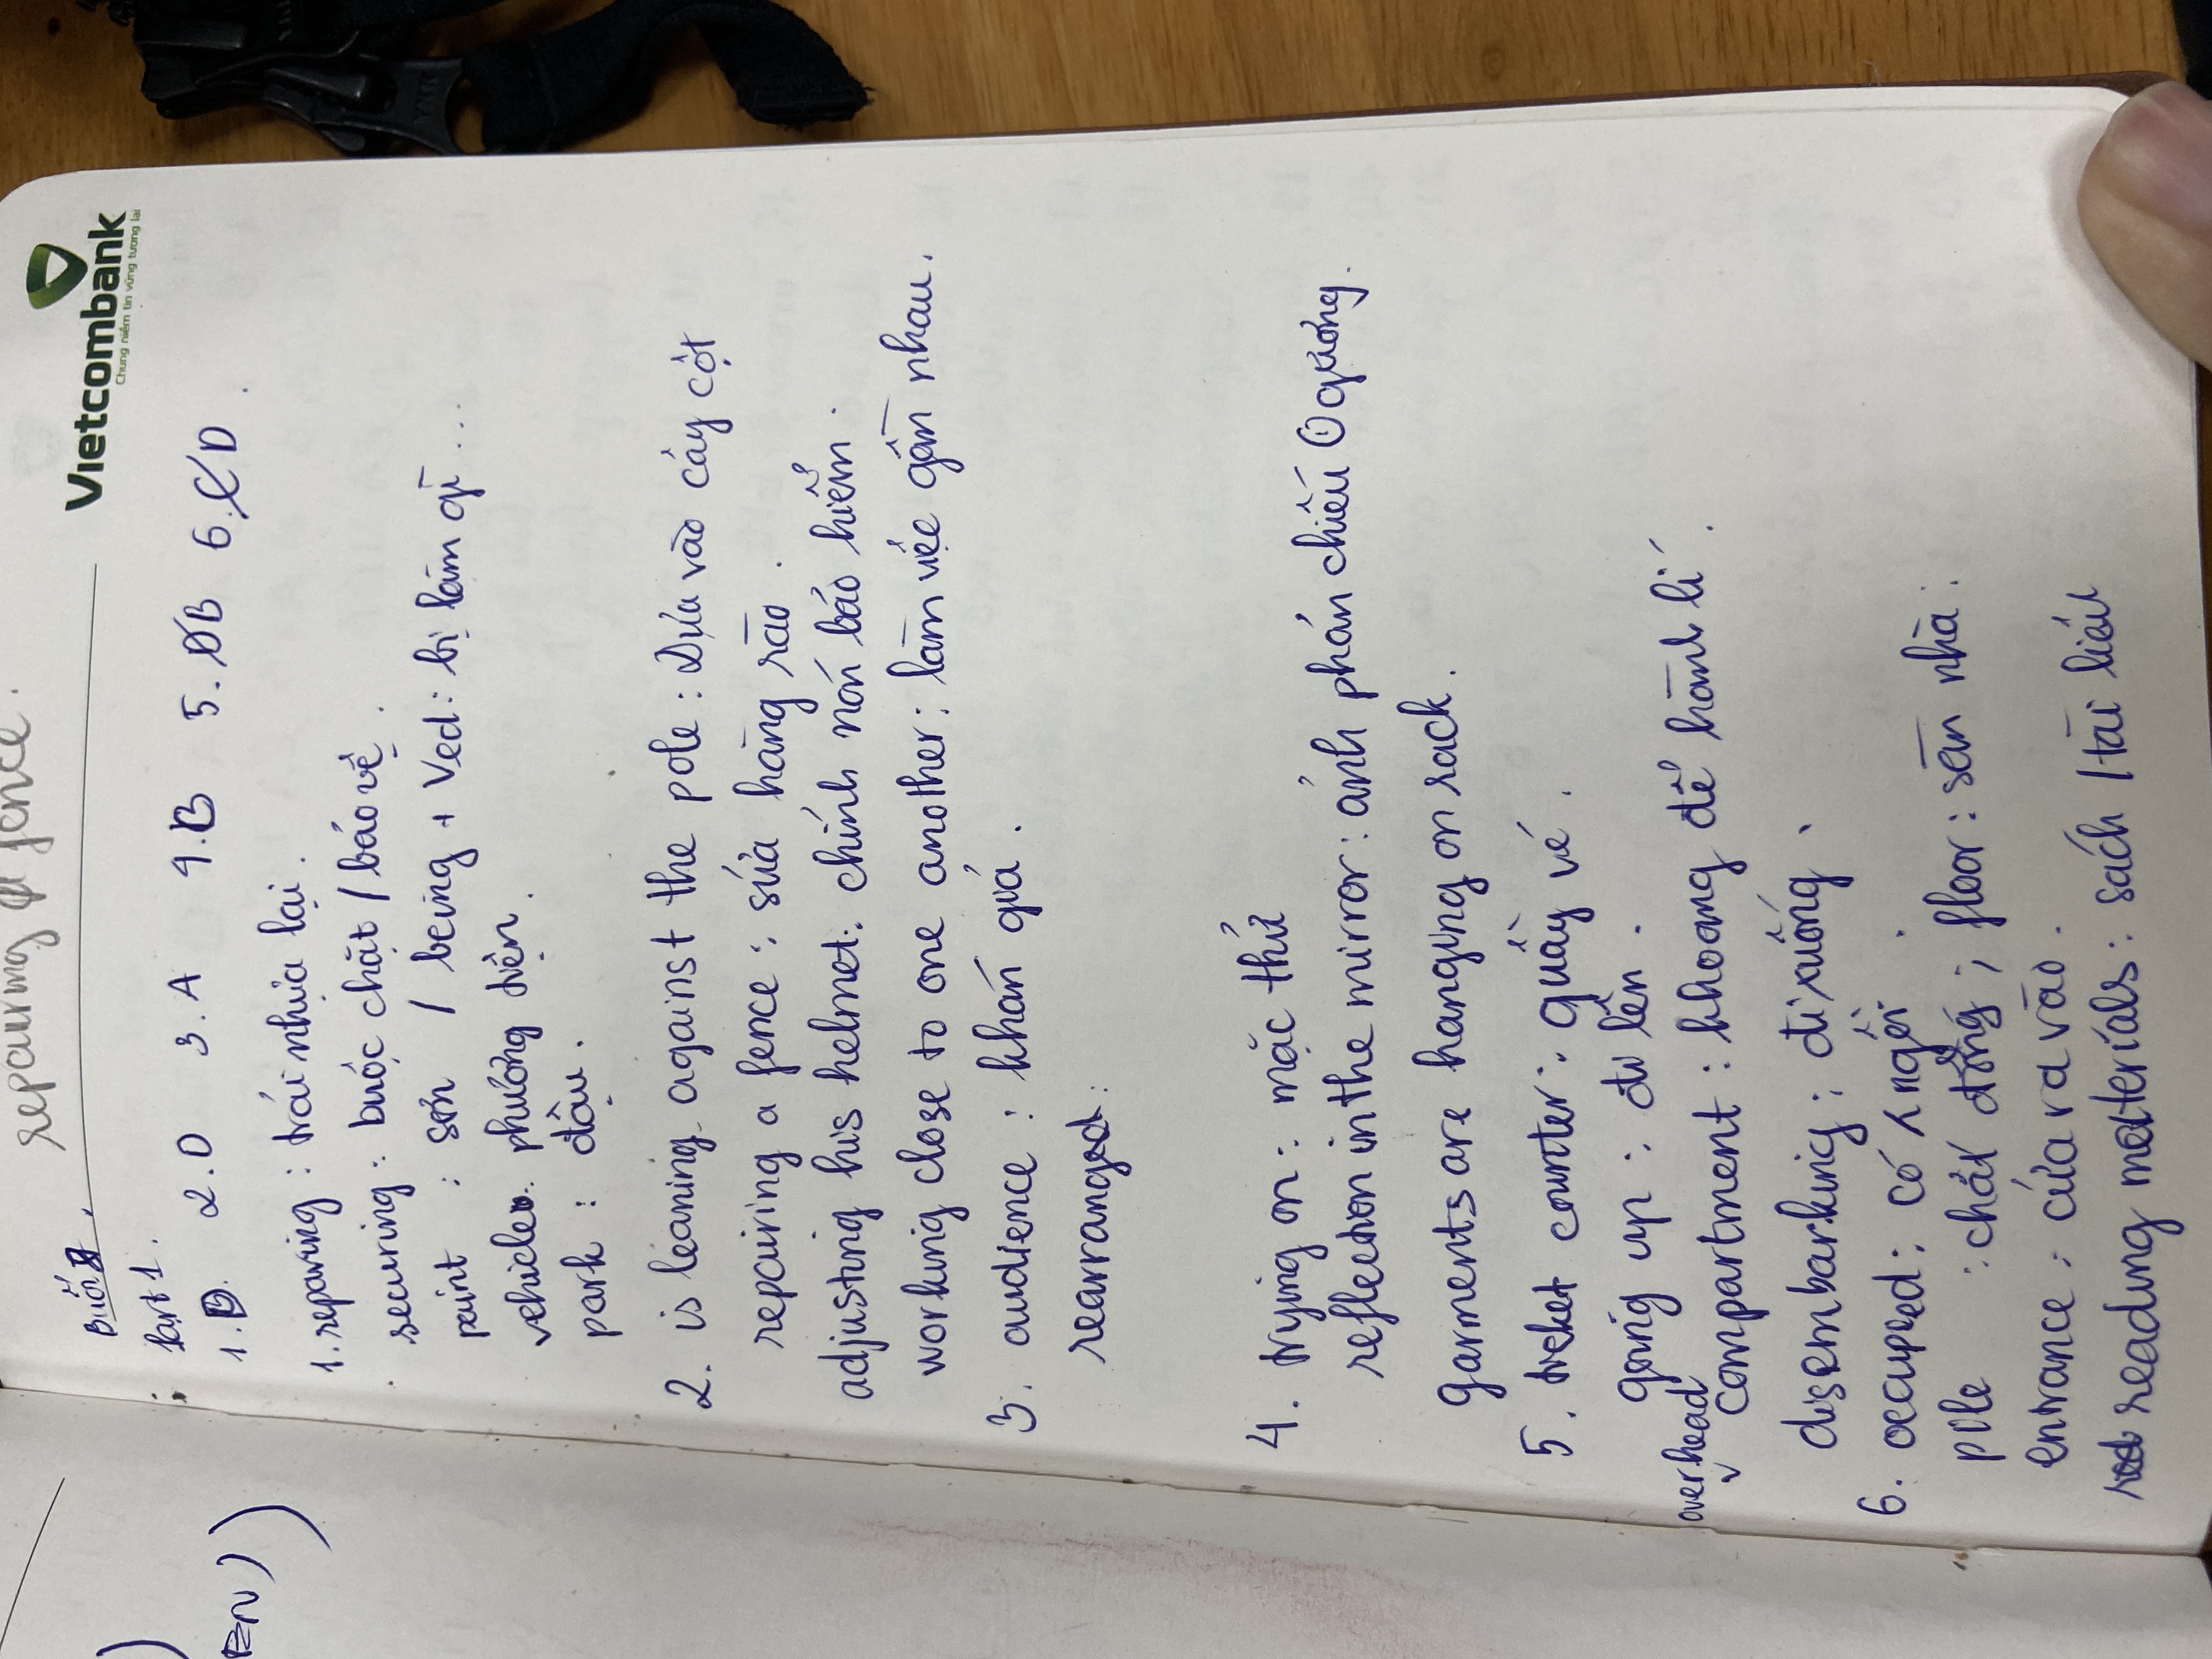 repairing a fence.
Vietcombank
Chung niềm tin vững tương lai
Buổi 7.
EN))
Part 1.
1. D. 2. D 3. A 4. B 5. B 6. D.
1. repaving : trải nhựa lại.
securing : buộc chặt / bảo vệ.
paint : sơn / being + Ved : bị làm gì ...
vehicles : phương tiện.
park : đậu.
2. is leaning against the pole : Dựa vào cây cột
repairing a fence : sửa hàng rào.
adjusting his helmet : chỉnh nón bảo hiểm.
working close to one another : làm việc gần nhau.
3. audience : khán giả.
rearranged :
4. trying on : mặc thử
reflection in the mirror : ảnh phản chiếu gương.
garments are hanging on rack.
5. ticket counter : quầy vé.
going up : đi lên.
overhead
compartment : khoang để hành lí.
disembarking : đi xuống.
6. occupied : có ngồi.
pile : chất đống ; floor : sàn nhà.
entrance : cửa ra vào.
reading materials : sách / tài liệu